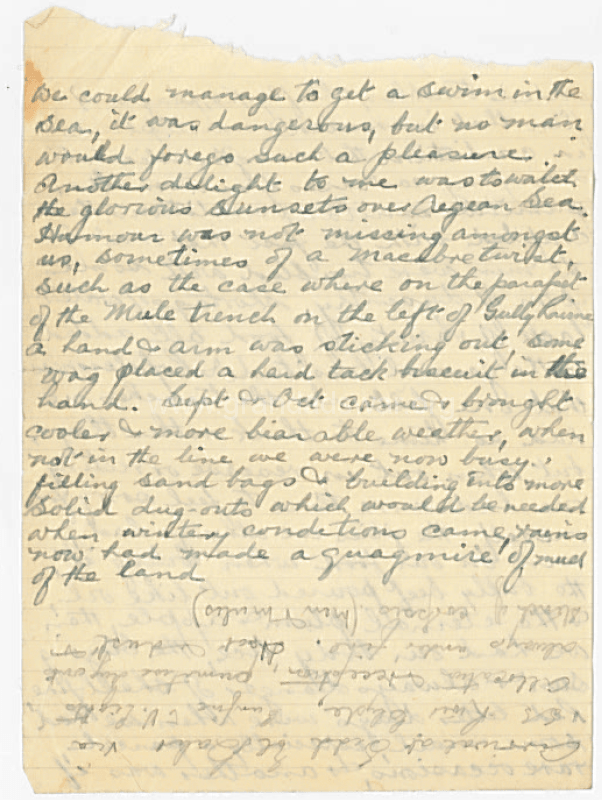 we could manage to get a swim in the
sea, it was dangerous, but no man
would forego such a pleasure.
Another delight to me was to watch
the glorious sunsets over Aegean Sea.
Humour was not missing amongst
us, sometimes of a macabre twist,
such as the case where on the parapet
of the Mule trench on the left of Gully Ravine
a hand & arm was sticking out, some
wag placed a hard tack biscuit in the
hand. Sept & Oct came & brought
cooler & more bearable weather, when
not in the line we were now busy,
filling sand bags & building into more
solid dug-outs which would be needed
when wintery conditions came, rains
now had made a quagmire of mud
of the land
Arrival at Sedd el Bahr via
River Clyde,
Allocation & reception, primitive dug outs
always under fire. Heat & dust &
(Men & mules)